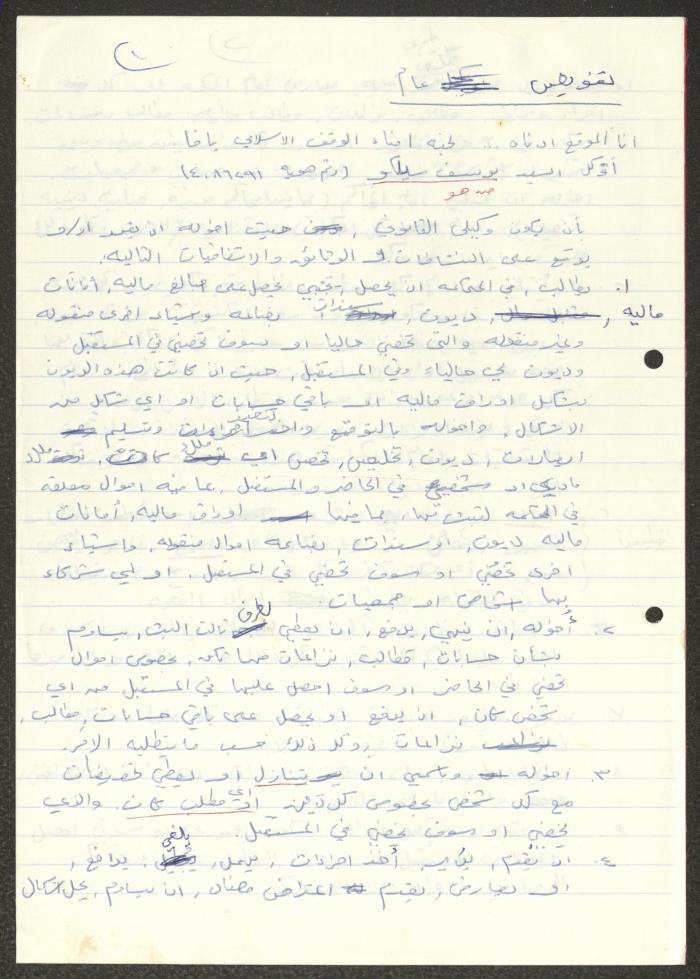 ١
تفويض عام
انا الموقع ادناه .. لجنه امناء الوقف الاسلامي يافا
أوكل السيد يوسف سيلكو (رقم هويه ٤٠٨٦٢٠٩١)
من هو
بأن يكون وكيلي القانوني , حيث اخوله ان يقدم او/و
يوقع على النشاطات و الوثائق والاتفاقيات التاليه.
١. يطالب, في المحكمه ان يحصل, وتجبي يحصل على مبالغ ماليه, أمانات
ماليه, ديون, سندات, بضاعه واشياء اخرى منقوله
وغير منقوله والتي تخصني حاليا او سوف تخصني في المستقبل
وديون لي حالياء وفي المستقبل, حيث ان كانت هذه الديون
بشكل اوراق ماليه او باقي حسابات او اي شكل من
الاشكال, واخوله بالتوقيع تنفيذ وتسليم
ايصالات, ديون, تخليص, تخص اي ملك كان,
ماديه او في الحاضر والمستقبل, بما فيه اموال معلقه
في المحكمه بما فيها اوراق ماليه, أمانات
ماليه ديون, وسندات, بضاعه اموال منقوله, واشياء
اخرى تخصني او سوف تخصني في المستقبل. او لي شركاء
بها اشخاص او جمعيات.
٢. أخوله, ان ينهي, يدفع, ان يعطي لطرف ثالث البت, يساوم
بشأن حسابات, مطالب, نزاعات مهما تكن, بخصوص اموال
تخصني في الحاضر او سوف احصل عليها في المستقبل من اي
شخص كان, ان يدفع او يحصل على باقي حسابات, مطالب,
نزاعات وكل ذلك حسب ما يتطلبه الامر.
٣. أخوله وباسمي ان يتنازل او يعطي تخفيضات
مع كل شخص بخصوص كل دين او اي مطلب كان. والذي
يخصني او سوف يخصني في المستقبل.
٤. ان يقيم, يدير, أخذ اجراءات, يهمل, يلغي, يدافع,
او يعارض, يقدم اعتراض مضاد, ان يساوم, بكل اشكال